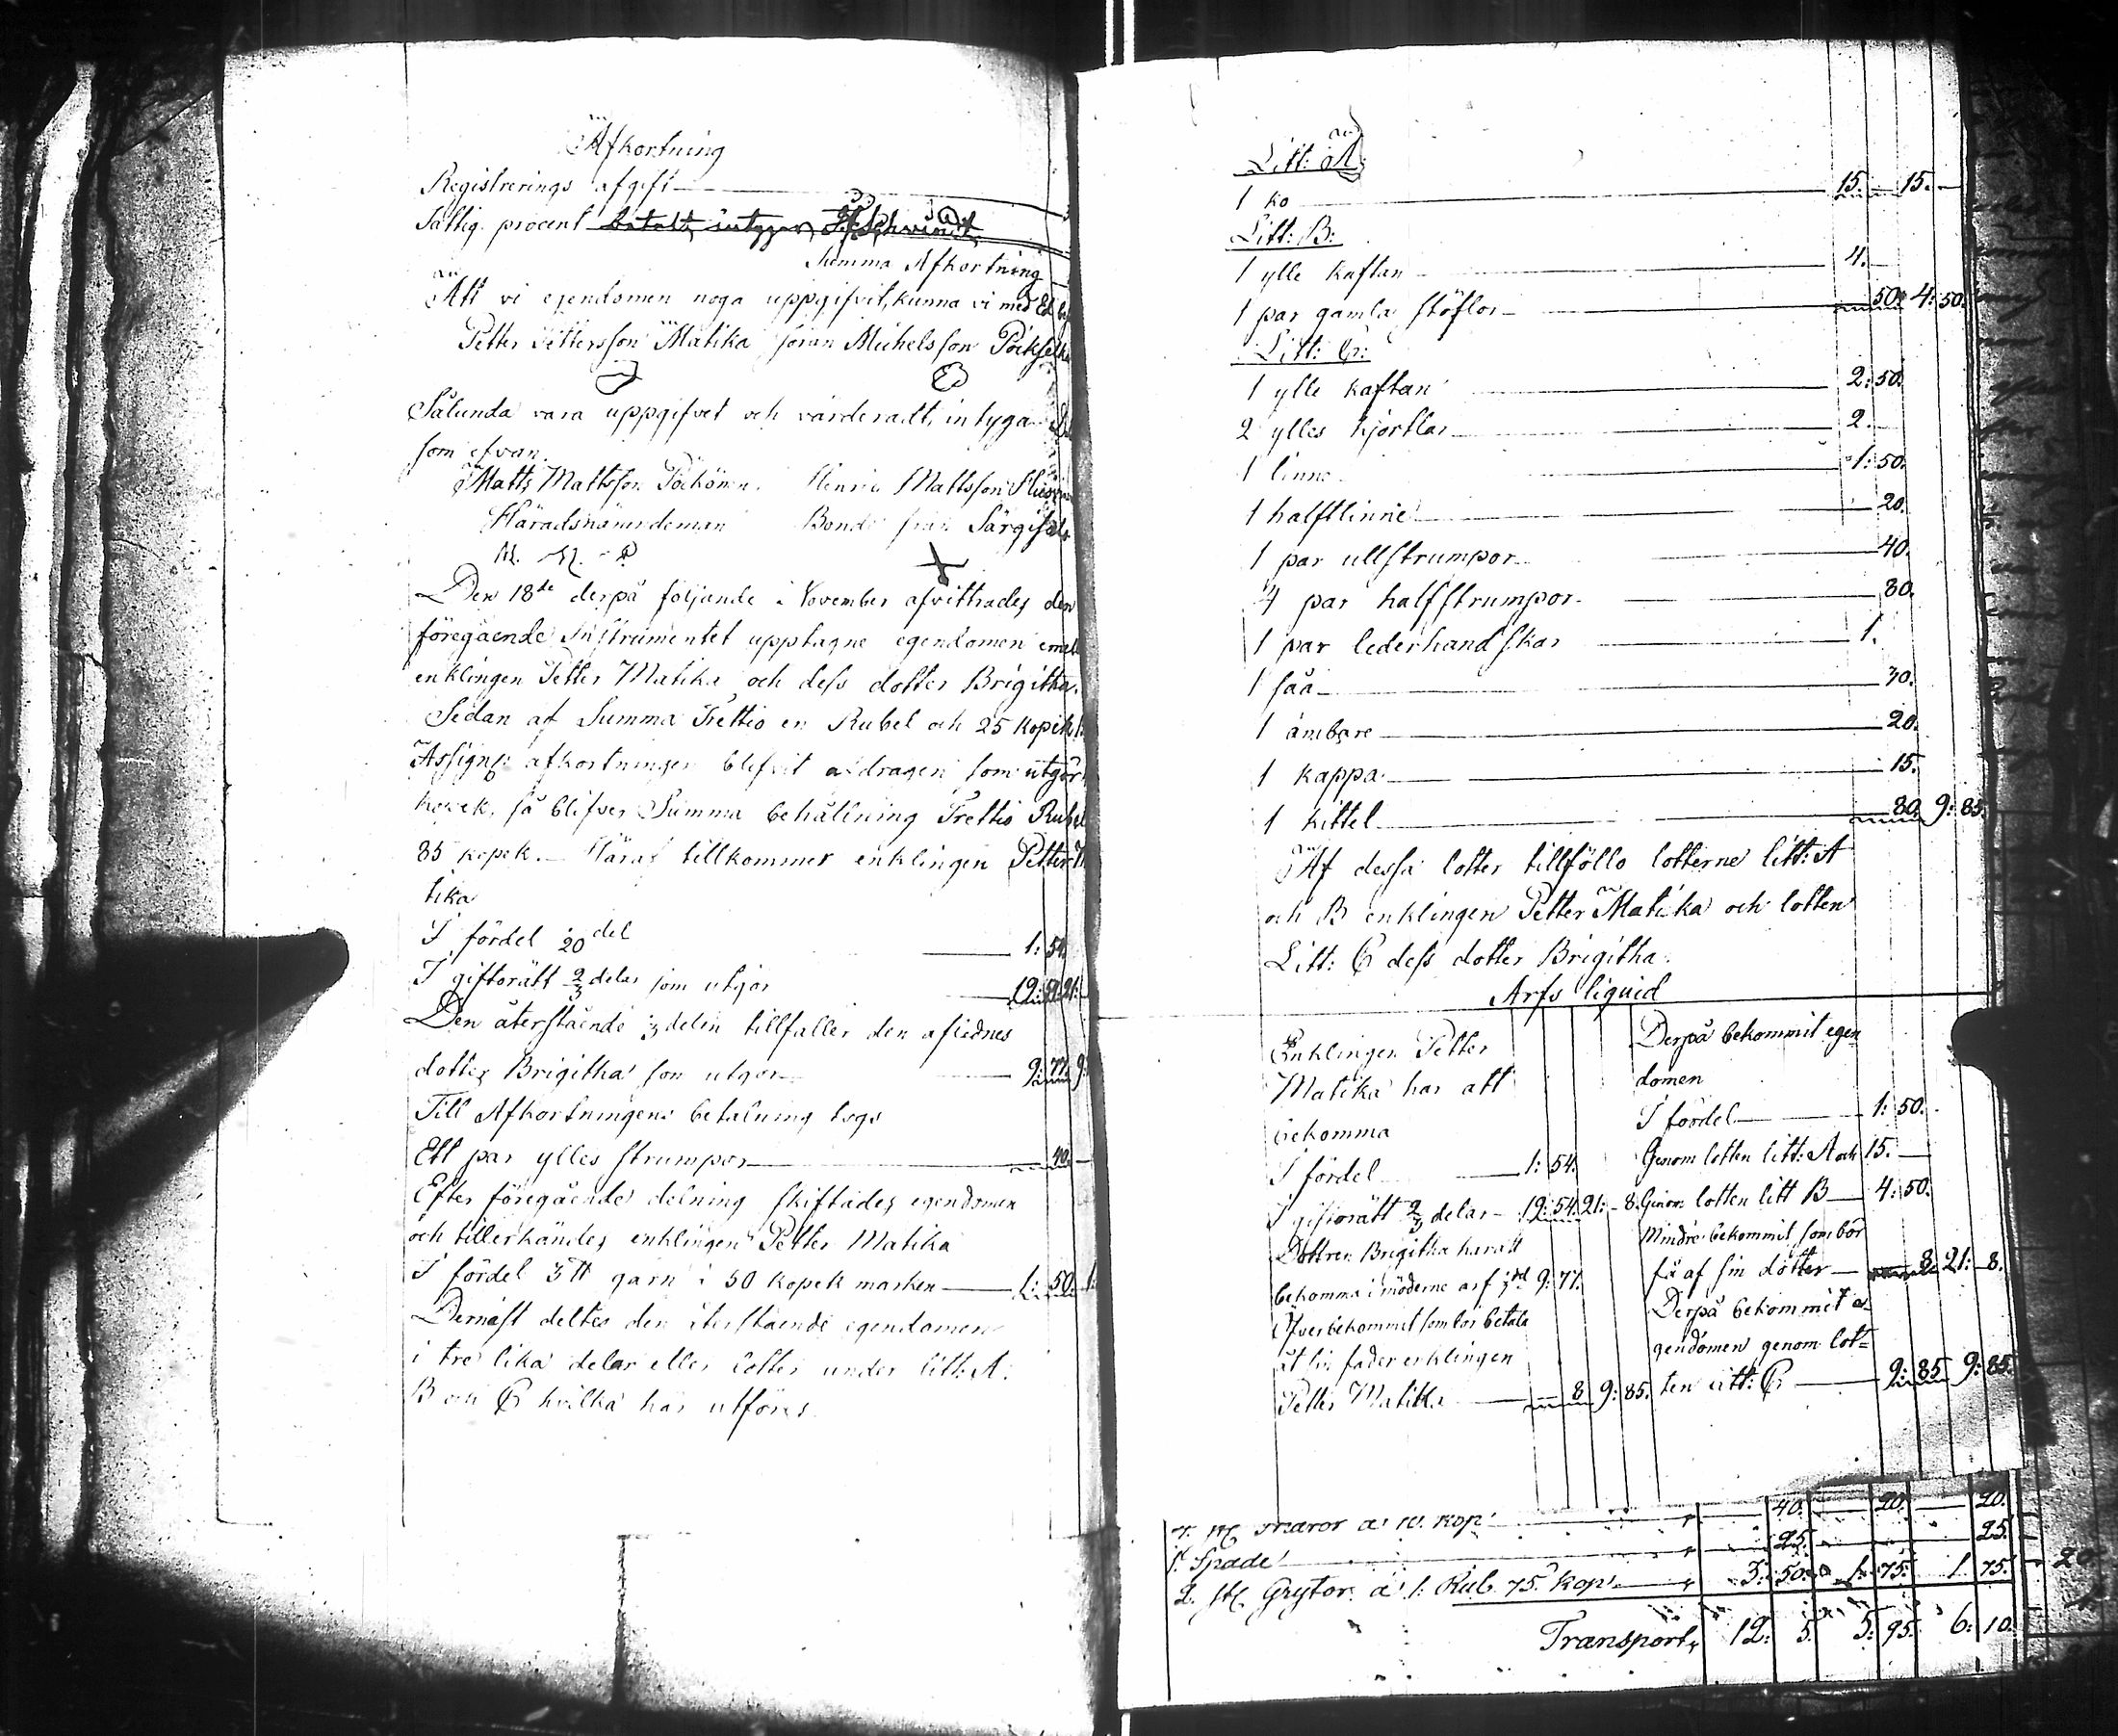 Afkortning
Registrerings afgift
Fattig procent betalt, intygar
Summa Afkortning
Att vi egendomen noga uppgifvit, kunna vi med Ed
Petter Pettersson Matika Jöran Michelsson
Sålunda vara uppgifvet och värderadt, intyga
som ofvan.
Matts Mattsson Pöckönen. Henric Mattsson
Häradsnämndeman Bonde från
M. M. P
Den 18de derpå följande November afvittrades den
föregående Instrumentet upptagne egendomen
enklingen Petter Matika och dess dotter Brigitha.
Sedan af Summa Trettio en Rubel och 25 kopek
Assign: afkortningen blifvit afdragen som utgör
kopek, så blifver Summa behållning Trettio Rubel
85 kopek. Häraf tillkommer enklingen Petter
tika
I fördel 20del 1: 54
I giftorätt 2/3 delar som utgör 19: 54. 21:
Den återstående 1/3 delen tillfaller den aflednes
dotter Brigitha som utgör 9: 77. 9:
Till Afkortningens betalning togs
Ett par ylles strumpor 40.
Efter föregående delning skiftades egendomen
och tillerkändes enklingen Petter Matika
I fördel 3 tt garn i 50 kopek marken 1: 50. 1:
Dernäst deltes den återstående egendomen
i tre lika delar eller lotter under litt: A.
B och C hvilka här utföres
Litt: A:
1 ko 15. 15.
Litt: B:
1 ylle kaftan 4.
1 par gamla stöflor 50. 4: 50.
Litt: C:
1 ylle kaftan 2: 50.
2 ylles kjortlar 2.
1 linne 1: 50.
1 halftlinne 20.
1 par ullstrumpor 40.
4 par halfstrumpor 80.
1 par lederhandskar 1.
1 såå 30.
1 ämbare 20.
1 kappa 15.
1 kittel 80. 9: 85.
Af dessa lotter tillföllo lotterne litt: A
och B enklingen Petter Matika och lotten
Litt: C dess dotter Brigitha.
Arfs liquid
Enklingen Petter
Matika har att
bekomma
I fördel 1: 54.
I giftorätt 2/3 delar 19: 54. 21: 8.
Dottren Brigitha har att
bekomma i möderne arf 1/3del 9: 77.
Öfverbekommit som bör betala
åt sin fader enklingen
Petter Matika 8 9: 85.
Derpå bekommit egen
domen
I fördel 1: 50.
Genom lotten litt: A och 15.
Genom lotten litt B 4: 50.
Mindre bekommit, som bör
få af sin dotter 8. 21: 8.
Derpå bekommit e
gendomen genom lot=
ten litt: C 9: 85 9: 85.
a 10. kop 40. 20. 20.
1. Spade 25. 25.
2. st. Grytor a 1. Rub. 75. kop. 3: 50. 1. 75. 1. 75.
Transport, 12: 5. 5: 95. 6: 10.